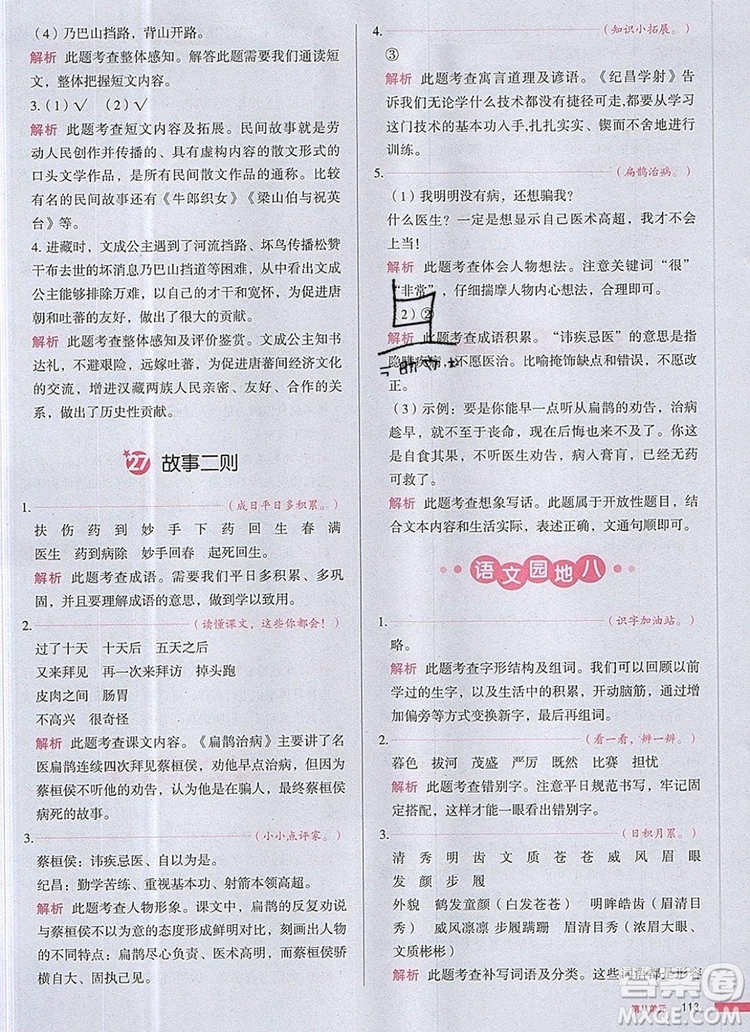 (4) 乃巴山挡路，背山开路。
解析 此题考查整体感知。解答此题需要我们通读短
文，整体把握短文内容。
3.(1)√ (2)√
解析 此题考查短文内容及拓展。民间故事就是劳
动人民创作并传播的、具有虚构内容的散文形式的
口头文学作品，是所有民间散文作品的通称。比较
有名的民间故事还有《牛郎织女》《梁山伯与祝英
台》等。
4. 进藏时，文成公主遇到了河流挡路、坏鸟传播松赞
干布去世的坏消息乃巴山挡道等困难，但文成公主
都能够排除万难，体现了自己的才干和宽怀，为促进唐
朝和吐蕃的友好作出了很大的贡献。
解析 此题考查整体感知及评价鉴赏。文成公主知书
达礼，不避艰险，远嫁吐蕃，为促进唐蕃间经济文化
的交流，增进汉藏两族人民亲密、友好、合作的关
系，做出了历史性贡献。
27 故事二则
1. (成日平日多积累。)
扶 伤 药 到 妙 手 下 药 回 生 春 满
医生 药到病除 妙手回春 起死回生。
解析 此题考查成语。我们要平日多积累、多巩
固，并且理解成语的意思，学以致用。
2. (读懂课文，这些你都会！)
过了十天 十天后 五天之后
又来拜见 再一次来拜访 掉头跑
皮肉之间 肠胃
不高兴 很奇怪
解析 此题考查课文内容。《扁鹊治病》主要讲了名
医扁鹊连续四次拜见蔡桓侯，劝说他治病，可是蔡
桓侯不听他的劝告，认为他是在骗人，最后蔡桓侯
病死的故事。
3. (小小点评家。)
蔡桓侯：讳疾忌医、自以为是。
纪昌：勤学苦练、重视基本功、射箭本领高强。
解析 此题考查人物形象。课文中，扁鹊的反复劝说
与蔡桓侯的态度形成鲜明对比，刻画出人物截然不
同的特点：扁鹊尽心负责、医术高明，而蔡桓侯骄
横自大、固执己见。
4. (知识小拓展。)
③
解析 此题考查寓言道理及谚语。《纪昌学射》告
诉我们无论学什么技术都没有捷径可走，都要从学习
这门技术的基本功入手，扎扎实实、锲而不舍地进行
训练。
5. (扁鹊治病。)
(1) 我明明没有病，还想骗我？
什么医生？一定是想显示自己医术高超，我才不会
上当！
解析 此题考查体会人物想法。注意关键词“很”
“非常”，仔细揣摩人物内心想法，合理即可。
2)②
解析 此题考查成语积累。“讳疾忌医”的意思是指
隐瞒疾病，不愿医治。比喻掩饰缺点和错误，不愿改
正。
(3) 示例：要是你能早一点听从扁鹊的劝告，治病
趁早，就不至于丧命，现在后悔也没有用了。这都
是自食其果，不听医生劝告，病入膏肓，已经无药
可救了。
解析 此题考查想象写话。此题属于开放性题目，结
合文本内容和生活实际，表达正确、文通句顺即可。
语文园地八
1. (识字加油站。)
略。
解析 此题考查字形结构及组词。我们可以根据平时
学过的生字，以及生活中的积累，开动脑筋，用增
加偏旁等方式变换新字，然后再组词。
2. (看一看，辨一辨。)
暮色 拔河 茂盛 严厉 既然 比赛 担忧
解析 此题考查错别字。注意平日规范书写，牢记固
定搭配，才能更好地看出错别字。
3. (日积月累。)
清 秀 明 齿 文 质 苍 苍 威 风 眉 眼
发 步 履
外貌 鹤发童颜（白发苍苍） 明眸皓齿（眉清目
秀） 威风凛凛 步履蹒跚（浓眉大眼、
文质彬彬）
解析 此题考查补写词语及分类。这些
第八单元 113
答案圈